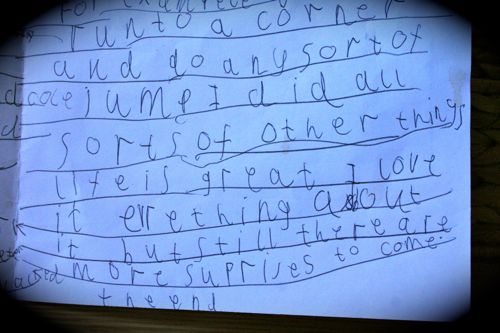 For example
run to a corner
and do any sort of
jump I did all
sorts of other things
life is great I love
it errething about
it but still there are
more suprises to come.
the end